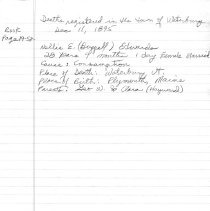 Deaths registered in the Town of Waterbury
Dec 11, 1895
Book
Page
Nellie E. (Buzzell) Edwards
26 years 9 months 1 day Female Married
Cause: Consumption
Place of Death: Waterbury, Vt.
Place of Birth: Plymouth, Maine
Parents: Geo W. & Clara (Hayward)